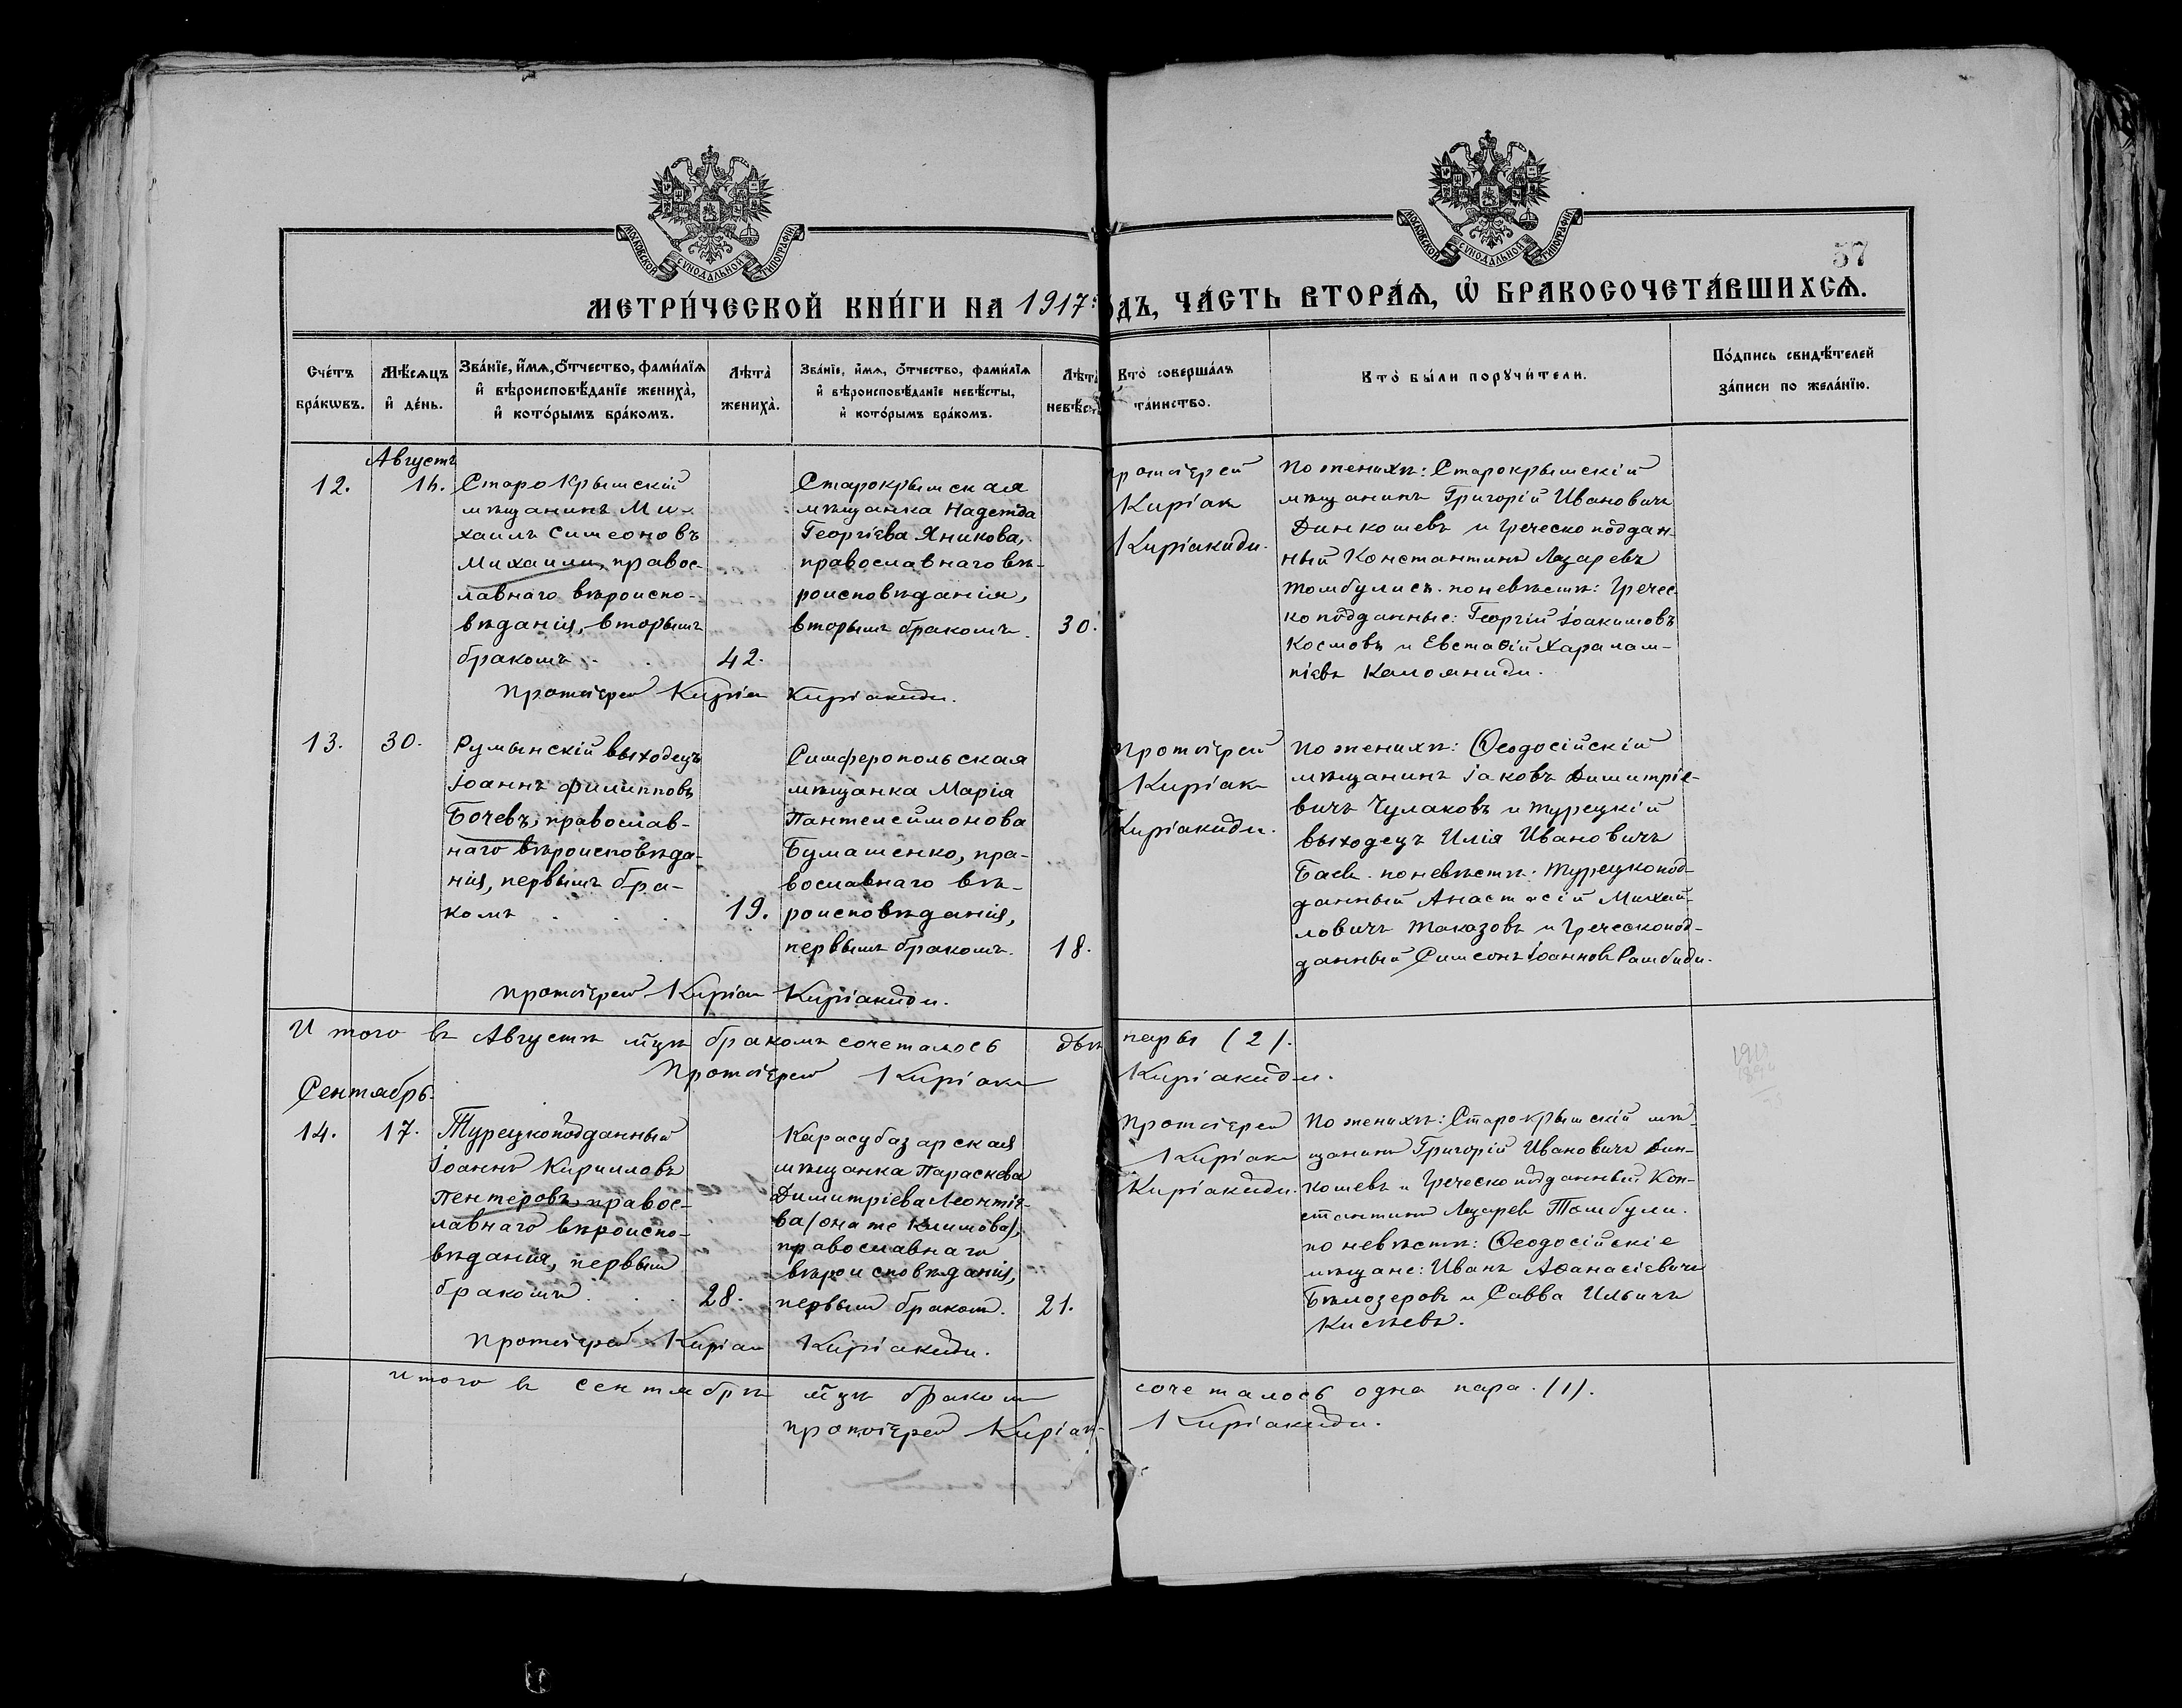 МОСКОВСКОЙ СѴНОДАЛЬНОЙ ТИПОГРАФІИ
МОСКОВСКОЙ СѴНОДАЛЬНОЙ ТИПОГРАФІИ
57
МЕТРИ́ЧЕСКОЙ КНИ́ГИ НА 1917 ОДЪ, ЧА́СТЬ ВТОРА́Ѧ, Ѡ҆ БРАКОСОЧЕТА́ВШИХСѦ.
Сче́тъ бра́кѡвъ.
Мѣ́сѧцъ и҆ де́нь.
Зва́нїе, и҆́мѧ, ѻ҆́тчество, фами́лїѧ и҆ вѣроисповѣ́данїе жениха̀, и҆ кото́рымъ бра́комъ.
Лѣ́та̀ жениха̀.
Зва́нїе, и҆́мѧ, ѻ҆́тчество, фами́лїѧ и҆ вѣроисповѣ́данїе невѣ́сты, и҆ кото́рымъ бра́комъ.
Лѣта̀ невѣ́с
Кто̀ соверша́лъ та́инство.
Кто̀ бы́ли порꙋчи́тели.
По́дпись свидѣ́телей за́писи по жела́нїю.
Августъ
12.
16.
Старокрымскій
мѣщанинъ Ми-
хаилъ Симеоновъ
Михаили, правос-
лавнаго вѣроиспо-
вѣданія, вторымъ
бракомъ . .
42.
Старокрымская
мѣщанка Надежда
Георгіева Яникова,
православнаго вѣ-
роисповѣданія,
вторымъ бракомъ.
30.
ротоіерей
Киріак
Киріакиди.
По женихѣ: Старокрымскій
мѣщанинъ Григорій Ивановичъ
Динкошевъ и Греческоподдан-
ный Константинъ Лазаревъ
Томбулисъ. по невѣстѣ: Гречес
коподданные: Георгій Іоакимовъ
Космовъ и Евстаѳій Харалам-
піевъ Каломниди.
Протоіерей Киріак Киріакиди.
13.
30.
Румынскій выходецъ
Іоаннъ Филипповъ
Бочевъ, православ-
наго вѣроисповѣда-
нія, первымъ бра-
комъ . . .
19.
Симферопольская
мѣщанка Марія
Пантелеймонова
Бумашенко, пра-
вославнаго вѣ-
роисповѣданія,
первымъ бракомъ.
18.
Протоіерей
Киріак
Киріакиди.
По женихѣ: Ѳеодосійскій
мѣщанинъ Іаковъ Димитріе-
вичъ Чулаковъ и турецкій
выходецъ Илія Ивановичъ
Баев. по невѣстѣ: Турецкопод-
данный Анастасій Михай-
ловичъ Таказовъ и Греческопод-
данный Симеонъ Іоанновъ Самбиди.
Протоіерей Киріак Киріакиди.
Итого въ Августѣ м҃цѣ бракомъ сочеталось двѣ пары (2).
Протоіерей Киріак Киріакиди.
Сентябрь.
14.
17.
Турецкоподданный
Іоаннъ Кирилловъ
Пентеровъ, правос-
лавнаго вѣроиспо-
вѣданія, первым
бракомъ . . .
28.
Карасубазарская
мѣщанка Параскева
Димитріева Леонтіе-
ва (она же Климова),
православнаго
вѣроисповѣданія,
первым бракомъ.
21.
Протоіерей
Киріак
Киріакиди.
По женихѣ: Старокрымскій мѣ-
щанинъ Григорій Ивановичъ Дин-
кошевъ и Греческоподданный Кон-
стантинъ Лазарев Томбули.
по невѣстѣ: Ѳеодосійскіе
мѣщане: Иванъ Аѳанасіевичъ
Бѣлозеровъ и Савва Ильичъ
Киселевъ.
Протоіерей Киріак Киріакиди.
Итого въ сентябрѣ м҃цѣ бракомъ сочеталось одна пара (1).
Протоіерей Киріак Киріакиди.